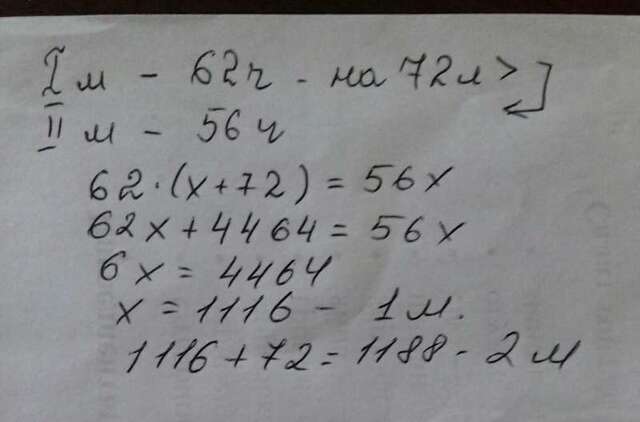 I м - 62ч - на 72л>
II м - 56ч
62·(x+72)=56x
62x+4464=56x
6x=4464
x=1116 - 1м.
1116+72=1188-2м